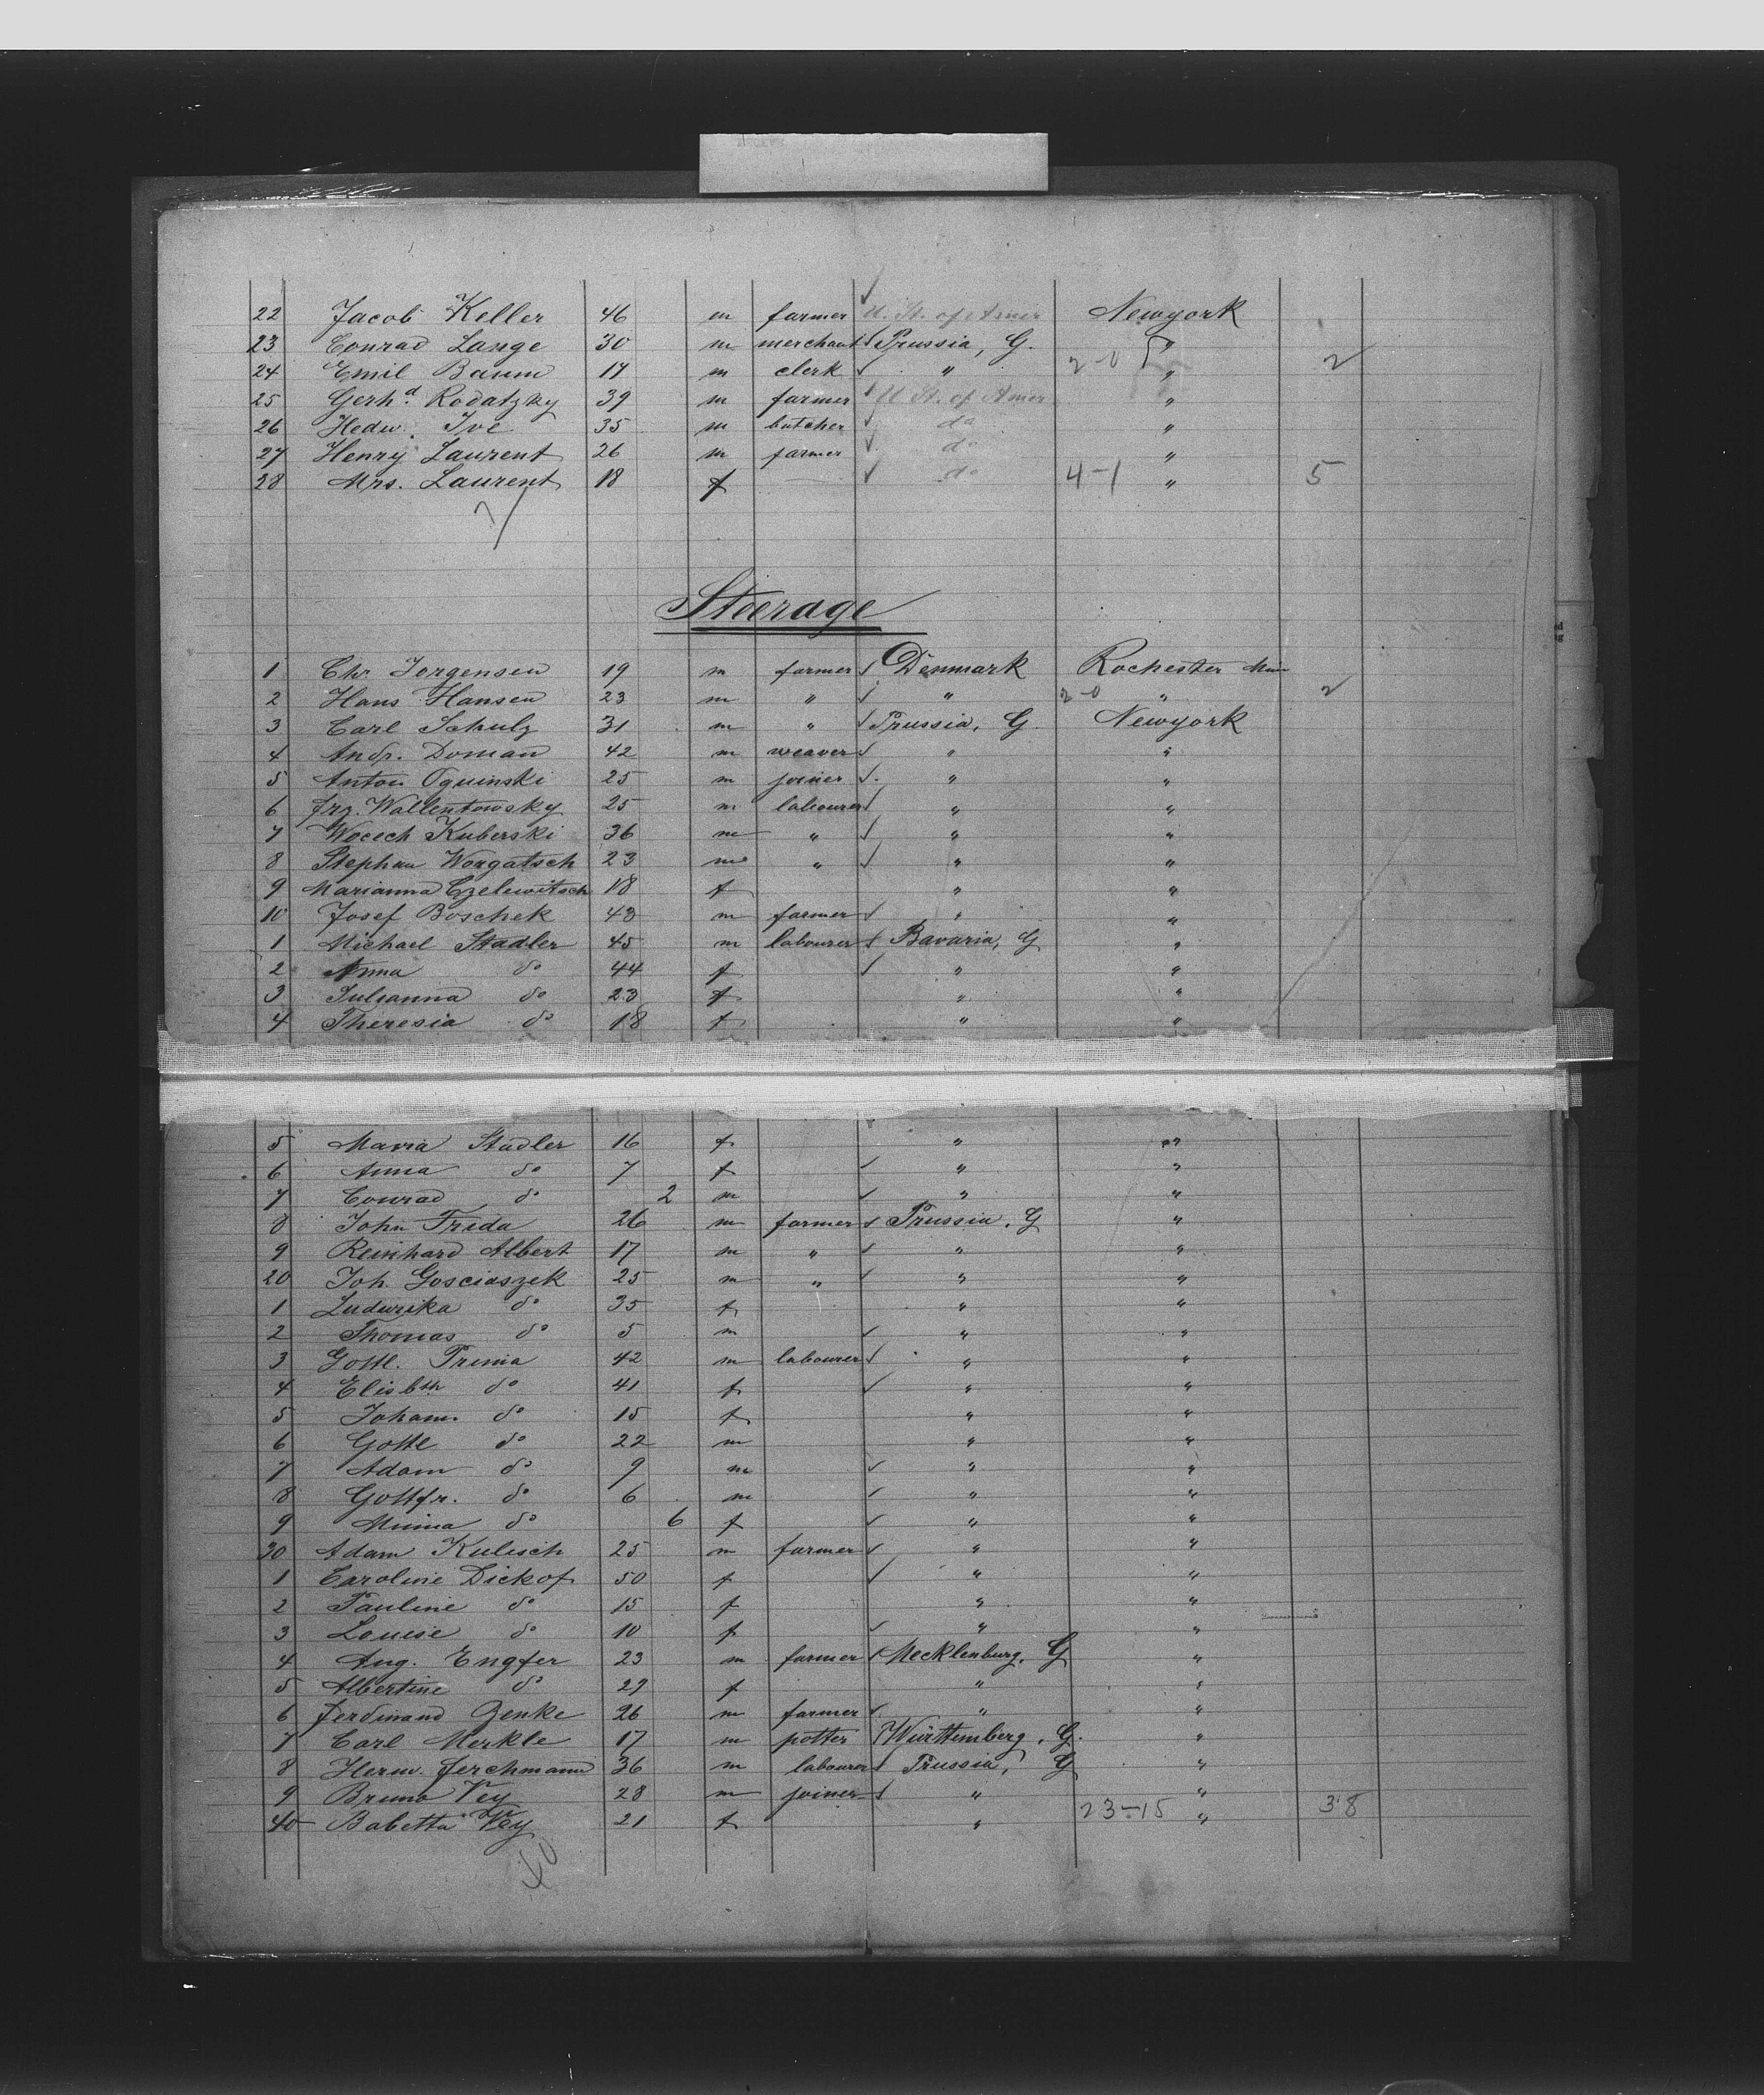 22 Jacob Keller 46 m farmer ✓ U. St. of Amer Newyork
23 Conrad Lange 30 m merchant ✓ Prussia, G. "
24 Emil Baum 17 m clerk ✓ " 2-0 " 2
25 Gerhd. Rodatzky 39 m farmer ✓ U. St. of Amer "
26 Hedw. Ive 35 m butcher ✓ do "
27 Henry Laurent 26 m farmer ✓ do "
28 Mrs. Laurent 18 f ✓ do 4-1 " 5
7/
Steerage
1 Chr. Jorgensen 19 m farmer ✓ Denmark Rochester Min
2 Hans Hansen 23 m " ✓ " 2-0 " 2
3 Carl Schulz 31 m " ✓ Prussia, G Newyork
4 Andr. Doman 42 m weaver ✓ " "
5 Anton Oguinski 25 m joiner ✓ " "
6 Frz. Wallentowsky 25 m labourer ✓ " "
7 Wocech Kuberski 36 m " ✓ " "
8 Stephan Worgatsch 23 m " ✓ " "
9 Marianna Czelewitsch 18 f " "
10 Josef Boschek 43 m farmer ✓ " "
1 Michael Stadler 45 m labourer ✓ Bavaria, G "
2 Anna do 44 f ✓ " "
3 Julianna do 23 f " "
4 Theresia do 18 f " "
5 Maria Stadler 16 f " "
6 Anna do 7 f ✓ " "
7 Conrad do 2 m ✓ " "
8 John Frida 26 m farmer ✓ Prussia, G "
9 Reinhard Albert 17 m " ✓ " "
20 Joh. Gosciaszek 25 m " ✓ " "
1 Ludwika do 35 f " "
2 Thomas do 5 m ✓ " "
3 Gottl. Prinia 42 m labourer ✓ " "
4 Elisbth do 41 f ✓ " "
5 Johann. do 15 f " "
6 Gottl do 22 m " "
7 Adam do 9 m ✓ " "
8 Gottfr. do 6 m ✓ " "
9 Minna do 6 f ✓ " "
30 Adam Kulisch 25 m farmer ✓ " "
1 Caroline Dickof 50 f ✓ " "
2 Pauline do 15 f " "
3 Louise do 10 f ✓ " "
4 Aug. Engfer 23 m farmer ✓ Mecklenburg, G "
5 Albertine do 27 f " "
6 Ferdinand Genke 26 m farmer ✓ " "
7 Carl Merkle 17 m potter Württemberg, G. "
8 Herm. Ferchmann 36 m labourer ✓ Prussia, G "
9 Bruno Vey 28 m joiner ✓ " "
40 Babetta Vey 21 f " 23-15 " 38
40